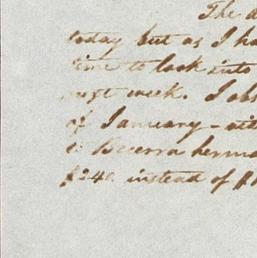 The
today but as I ha
time to look into
next week. I obs
of January - 
Becerra herma
$240 instead of